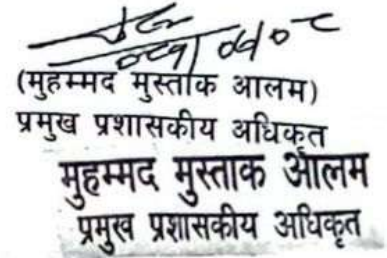 (मुहम्मद मुस्ताक आलम)
प्रमुख प्रशासकीय अधिकृत
मुहम्मद मुस्ताक आलम
प्रमुख प्रशासकीय अधिकृत